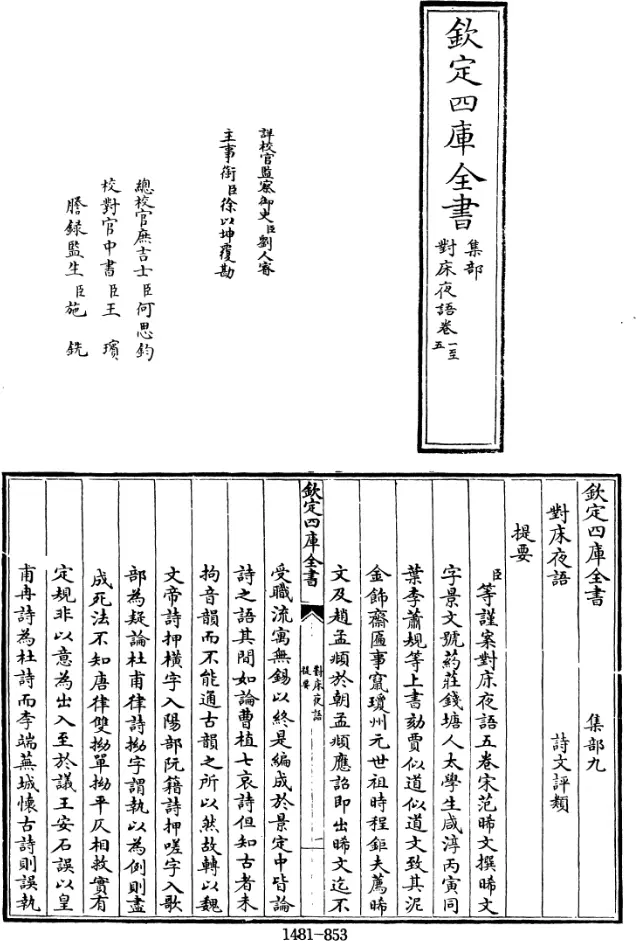 欽定四庫全書
集部
對床夜語卷一至五
詳校官監察御史臣劉人睿
主事銜臣徐以坤覆勘
總校官庶吉士臣何思鈞
校對官中書臣王璸
謄錄監生臣施銑
欽定四庫全書 集部九
對床夜語 詩文評類
提要
臣等謹案對床夜語五卷宋范晞文撰晞文
字景文號葯莊錢塘人太學生咸淳丙寅同
葉李蕭規等上書劾賈似道似道文致其泥
金飾齋匾事竄瓊州元世祖時程鉅夫薦晞
文及趙孟頫於朝孟頫應詔即出晞文迄不
欽定四庫全書 對床夜語 提要
受職流寓無錫以終是編成於景定中皆論
詩之語其間如論曹植七哀詩但知古者未
拘音韻而不能通古韻之所以然故轉以魏
文帝詩押橫字入陽部阮籍詩押嗟字入歌
部為疑論杜甫律詩拗字謂執以為例則盡
成死法不知唐律雙拗單拗平仄相救實有
定規非以意為出入至於議王安石誤以皇
甫冉詩為杜詩而李端蕪城懷古詩則誤執
1481-853